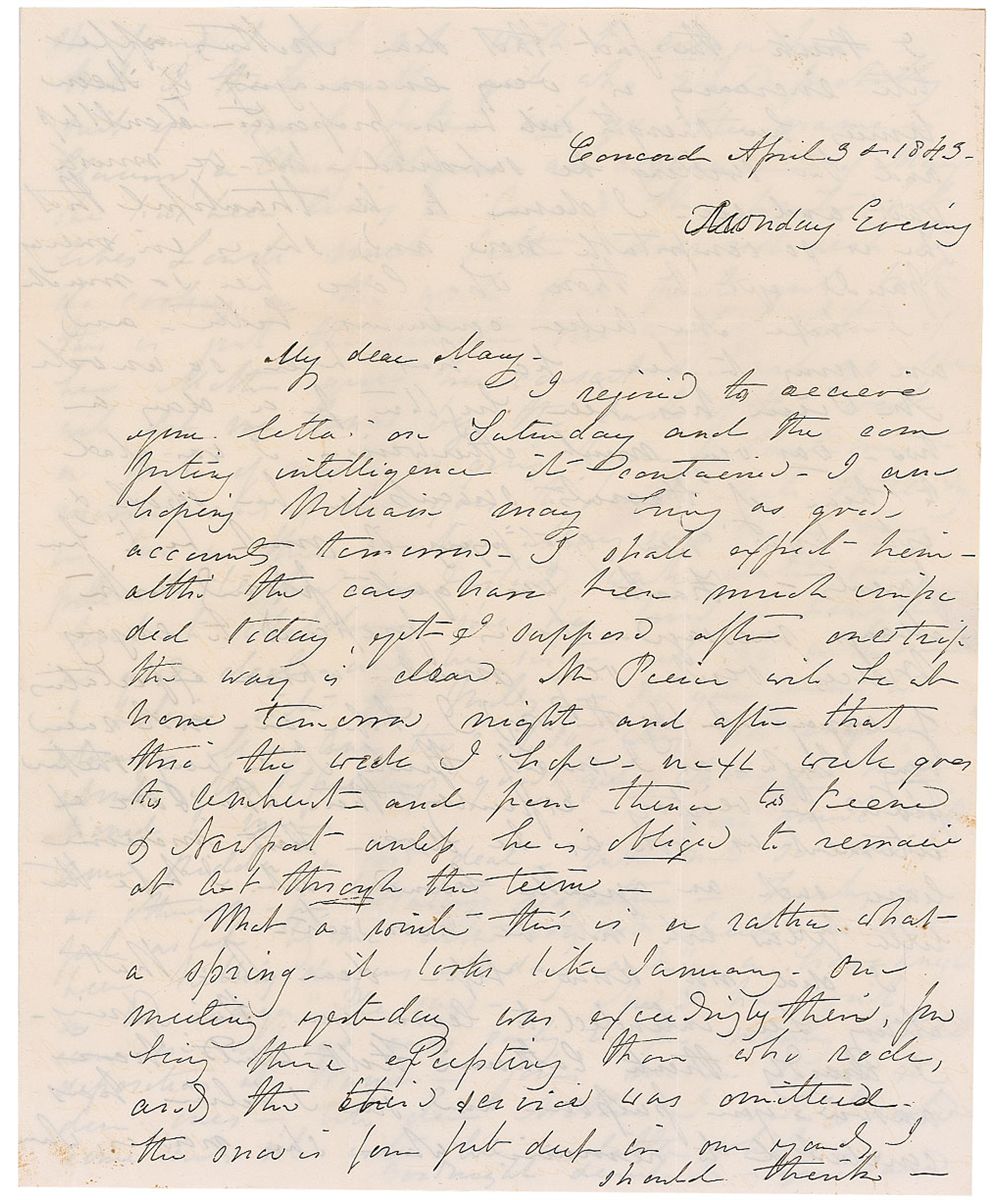 Concord April 3d 1843-
Monday Evening
My dear Mary-
I rejoiced to receive
your letter on Saturday and the com
forting intelligence it contained- I am
hoping William may bring as good
accounts tomorrow- I shall expect him-
altho the cars have been much impe
ded today, yet I suppose after one trip
the way is clear. Mr Peirce will be at
home tomorrow night and after that
thro the week I hope- next week goes
to Amherst- and from thence to Keene
& Newport unless he is obliged to remain
at A-t through the term-
What a winter this is, or rather what
a spring- it looks like January- Our
meeting yesterday was exceedingly thin, few
being there excepting those who rode,
and the third service was omitted-
the snow is four feet deep in our yard I
should think-